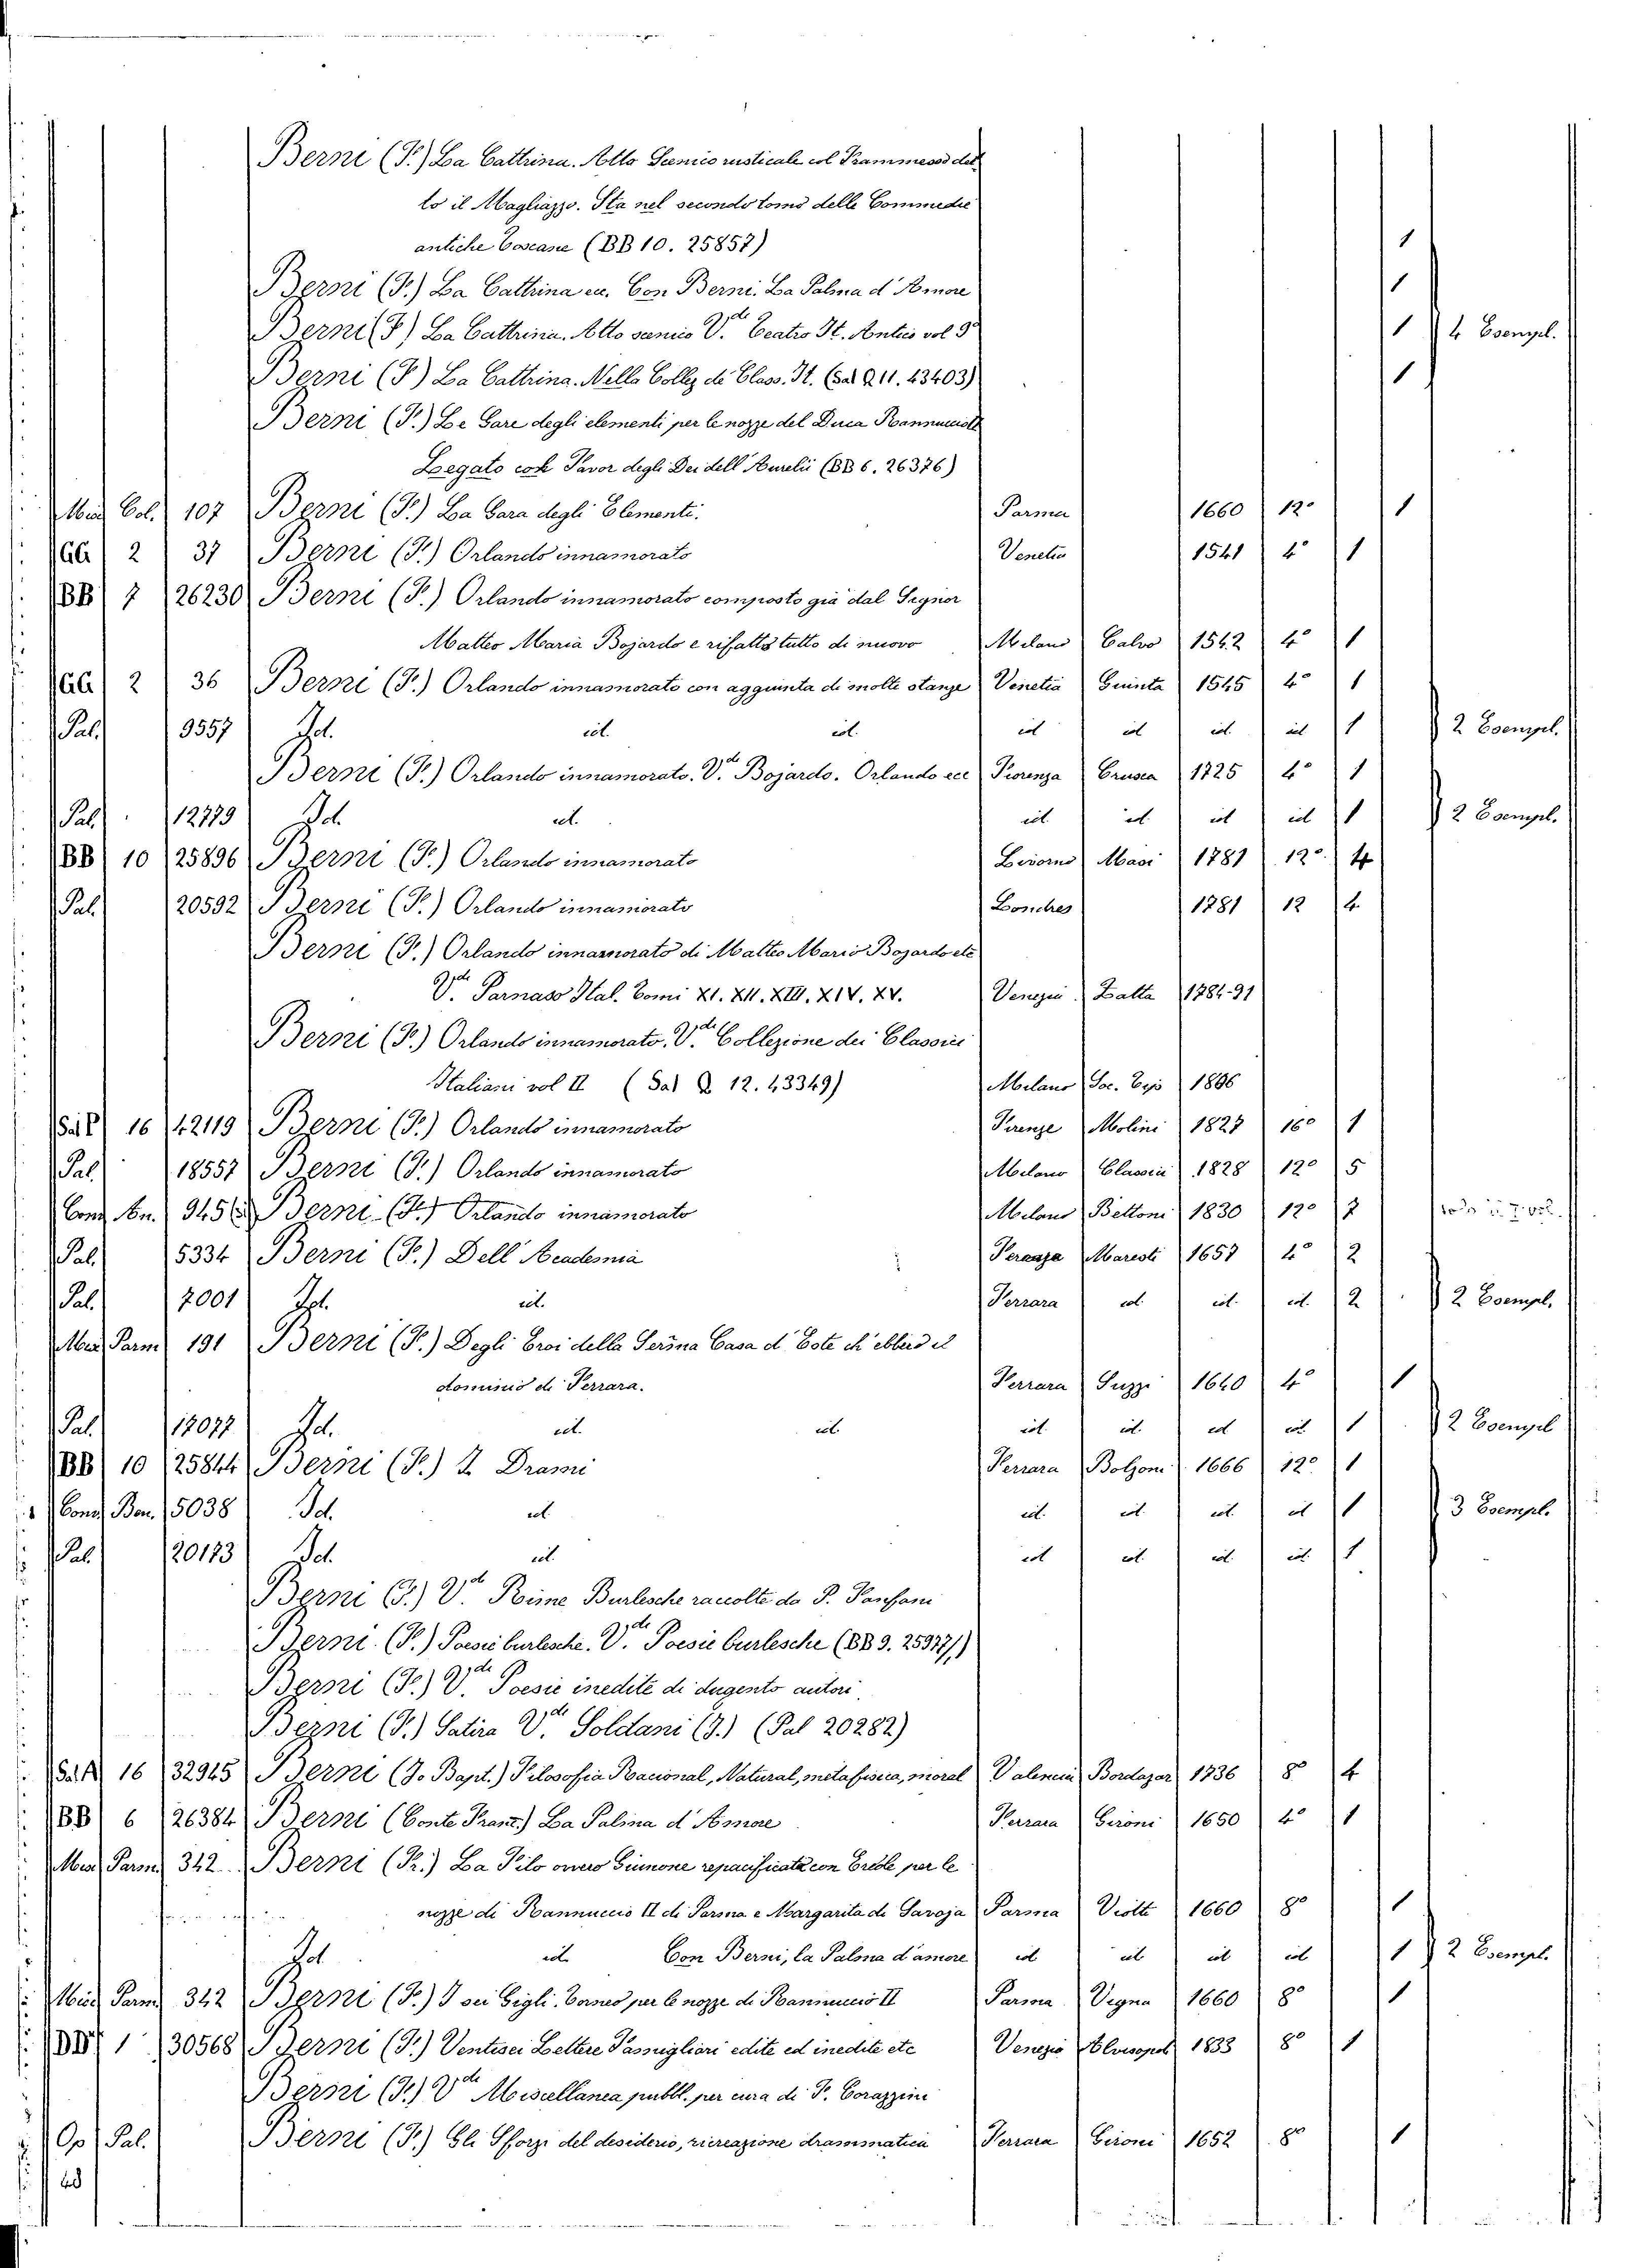 Berni (F.) La Cattrina. Atto Scenico rusticale col Frammesso det
to il Magliazzo. Sta nel secondo tomo delle Commedie
antiche toscane (BB 10. 25857) 1
Berni (F.) La Cattrina ec. Con Berni. La Palma d'Amore 1
Berni (F.) La Cattrina. Atto scenico V.de Teatro It. Antico vol 3º 1 4 Esempl.
Berni (F.) La Cattrina. Nella Collez de Class. It. (Sal Q 11. 43403) 1
Berni (F.) Le Gare degli elementi per le nozze del Duca Rannuccio II
Legato col Favor degli Dei dell'Aurelii (BB 6. 26376)
Misc Col. 107 Berni (F.) La Gara degli Elementi. Parma 1660 12º 1
GG 2 37 Berni (F.) Orlando innamorato Venetia 1541 4º 1
BB 7 26230 Berni (F.) Orlando innamorato composto già dal Signor
Matteo Maria Bojardo e rifatto tutto di nuovo Milano Calvo 1542 4º 1
GG 2 36 Berni (F.) Orlando innamorato con aggiunta di molte stanze Venetia Giunta 1545 4º 1
Pal. 9557 Id. id. id. id id id. id 1 2 Esempl.
Berni (F.) Orlando innamorato. V.de Bojardo. Orlando ecc Fiorenza Crusca 1725 4º 1
Pal. 12779 Id. id. id. id. id id 1 2 Esempl.
BB 10 25896 Berni (F.) Orlando innamorato Livorno Masi 1781 12º. 4
Pal. 20592 Berni (F.) Orlando innamorato Londres 1781 12 4
Berni (F.) Orlando innamorato di Matteo Mario Bojardo etc
V.de Parnaso Ital. Tomi XI. XII. XIII. XIV. XV. Venezia Zatta 1784-91
Berni (F.) Orlando innamorato. V.de Collezione dei Classici
Italiani vol II (Sal Q 12. 43349) Milano Soc. Tip 1806
Sal P 16 42119 Berni (F.) Orlando innamorato Firenze Molini 1827 16º 1
Pal 18557 Berni (F.) Orlando innamorato Milano Classici 1828 12º 5
Com An. 945 Berni (F.) Orlando innamorato Milano Bettoni 1830 12º 7
Pal. 5334 Berni (F.) Dell'Academia Maresti 1657 4º 2
Pal. 7001 Id. id. Ferrara id. id. id. 2 2 Esempl.
Misc Parm 191 Berni (F.) Degli Eroi della Ser.ma Casa d'Este ch'ebbero il
dominio di Ferrara. Ferrara Suzzi 1640 4º 1
Pal. 17077 Id. id. id. id. id. id id. 1 2 Esempl
BB 10 25844 Berni (F.) Drami Ferrara Bolzoni 1666 12º 1
Cons Ben. 5038 Id. id. id. id. id. id 1 3 Esempl.
Pal. 20173 Id. id. id id. id. id. 1
Berni (F.) V.de Rime Burlesche raccolte da P. Fanfani
Berni (F.) Poesie burlesche. V.de Poesie burlesche (BB 9. 25977/1)
Berni (F.) V.de Poesie inedite di dugento autori
Berni (F.) Satira V.de Soldani (J.) (Pal 20282)
Sal A 16 32945 Berni (Jo Bapt.) Filosofia Racional, Natural, metafisica, moral Valencia Bordazar 1736 8º 4
BB 6 26384 Berni (Conte Franc.) La Palma d'Amore Ferrara Gironi 1650 4º 1
Misc Parm 342 Berni (Fr.) La Filo overo Giunone repacificata con Ercole per le
nozze di Rannuccio II di Parma e Margarita di Savoja Parma Viotti 1660 8º 1
Id id. Con Berni, la Palma d'amore id id. id id 1 2 Esempl.
Misc Parm 342 Berni (F.) I sei Gigli. Torneo per le nozze di Rannuccio II Parma Vigna 1660 8º 1
DD 1 30568 Berni (F.) Ventisei Lettere Famigliari edite ed inedite etc Venezia Alvisopoli 1833 8º 1
Berni (F.) V.de Miscellanea pubbl. per cura di F. Corazzini
Op Pal. Berni (F.) Gli Sforzi del desiderio, ricreazione drammatica Ferrara Gironi 1652 8º 1